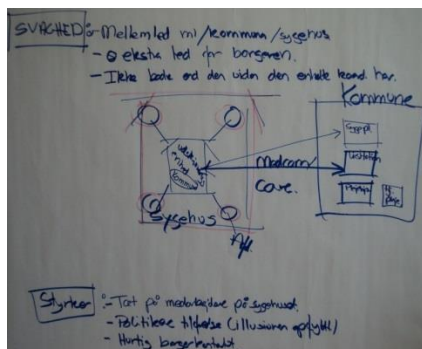 SVAGHED :- Mellemled ml/kommun/sygehus
- ekstra led for borgeren.
- Ikke bedre end den viden den enkelte har.
Kommune
Sygepl.
Visitation
kommune
Medcom/
Care.
Sygehus
Styrker :- Tæt på medarbejdere på sygehuset
- Politikere tilfredse (illusionen opfyldt)
- Hurtig borgerkontakt